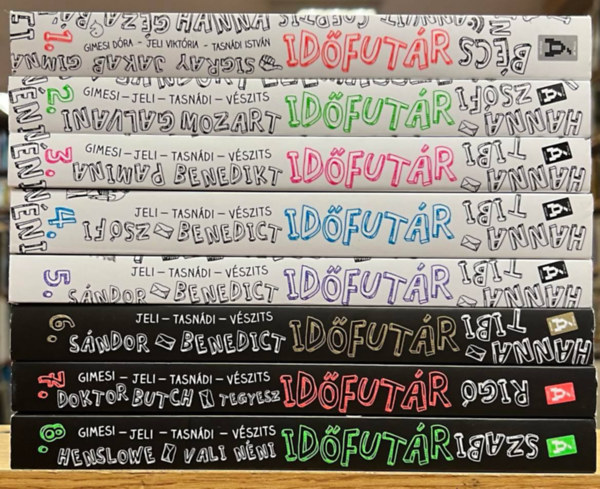 1. GIMESI DÓRA - JELI VIKTÓRIA - TASNÁDI ISTVÁN IDŐFUTÁR BÉCS Á
SIGRAY JAKAB GIMNÁ
HANNAH GÉZA
2. GIMESI – JELI – TASNÁDI – VÉSZITS IDŐFUTÁR ZSÓFI HANNA Á
GALVANI MOZART
3. GIMESI – JELI – TASNÁDI – VÉSZITS IDŐFUTÁR TIBI HANNA Á
PAMINA BENEDIKT
NÉNI
4. JELI – TASNÁDI – VÉSZITS IDŐFUTÁR TIBI HANNA Á
ZSÓFI BENEDICT
5. JELI – TASNÁDI – VÉSZITS IDŐFUTÁR TIBI HANNA Á
SÁNDOR BENEDICT
6. JELI – TASNÁDI – VÉSZITS IDŐFUTÁR TIBI HANNA Á
SÁNDOR BENEDICT
7. GIMESI – JELI – TASNÁDI – VÉSZITS IDŐFUTÁR RIGÓ Á
DOKTOR BUTCH X TEGYESZ
8. GIMESI – JELI – TASNÁDI – VÉSZITS IDŐFUTÁR SZABI Á
HENSLOWE X VALI NÉNI